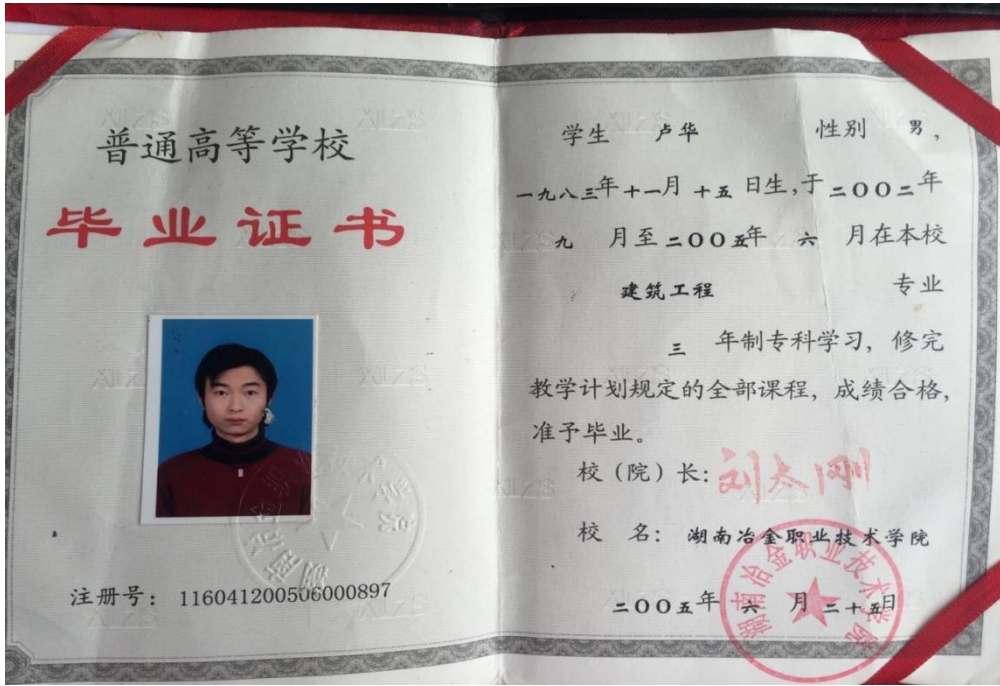 普通高等学校
毕业证书
注册号：116041200506000897
学生 卢华 性别 男，
一九八三年十一月十五日生，于二〇〇二年
九月至二〇〇五年六月在本校
建筑工程 专业
三 年制专科学习，修完
教学计划规定的全部课程，成绩合格，
准予毕业。
校（院）长：刘太刚
校 名：湖南冶金职业技术学院
二〇〇五年六月二十五日
湖南冶金职业技术学院